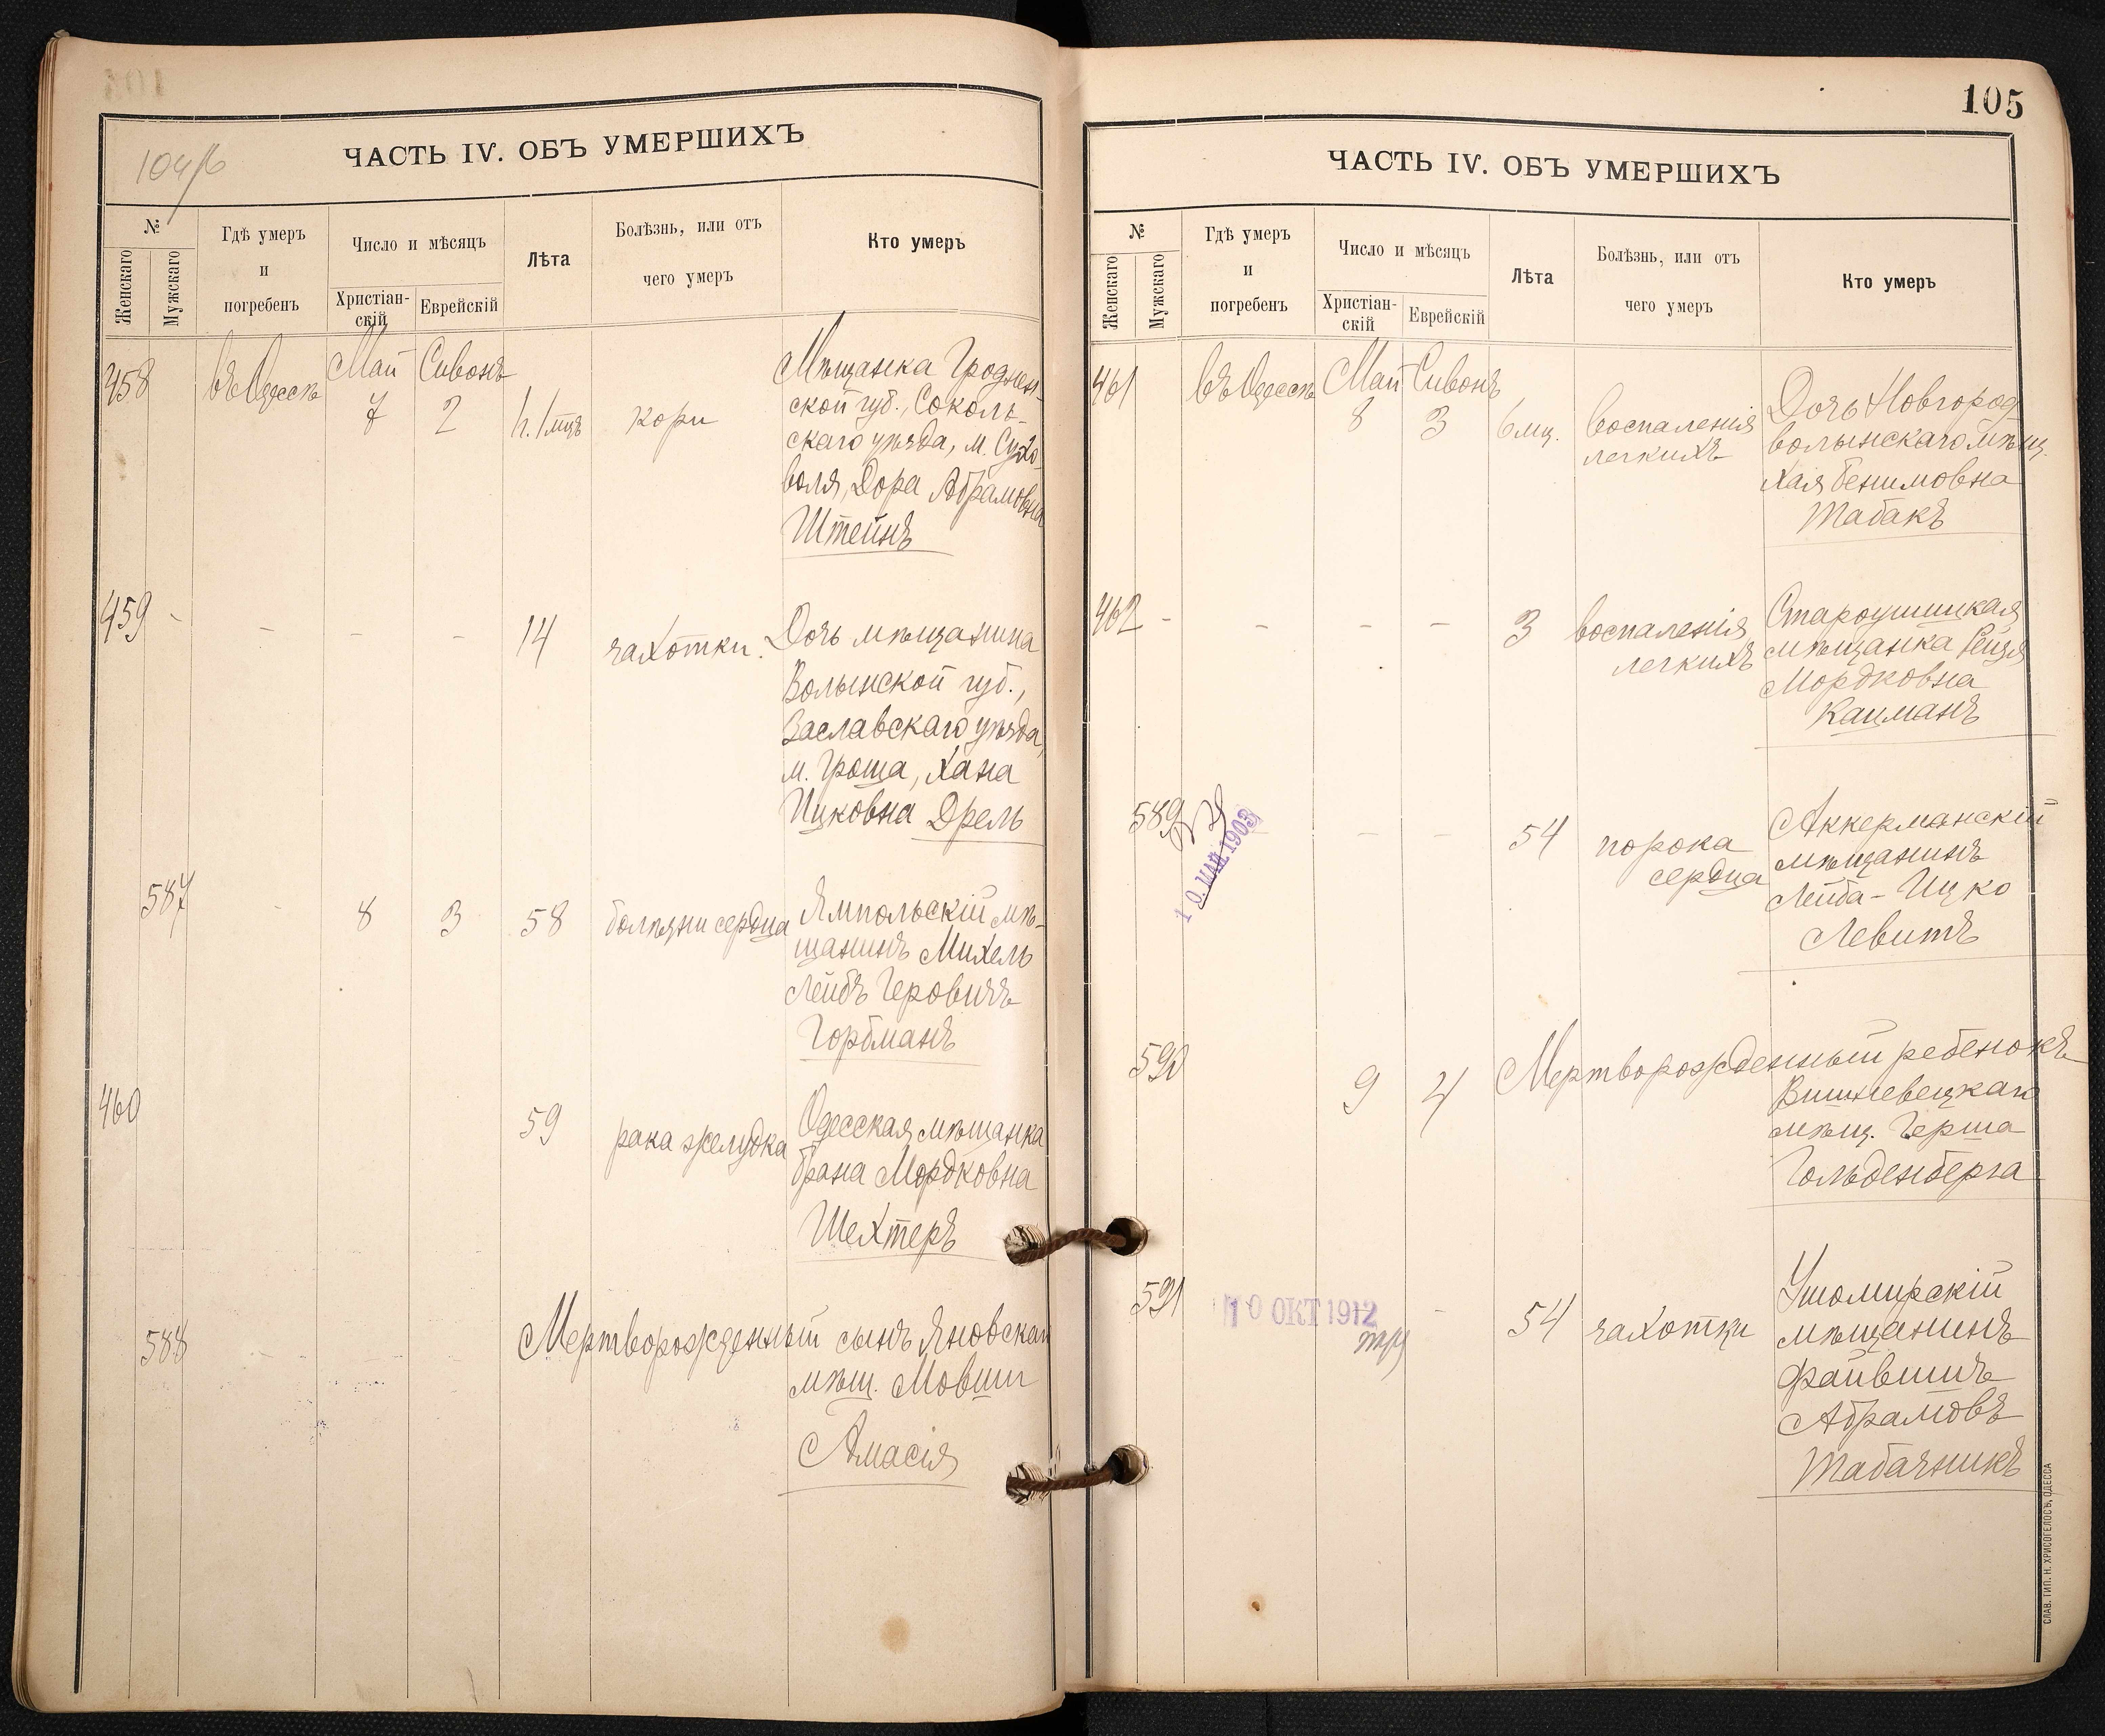 104/б
ЧАСТЬ IV. ОБЪ УМЕРШИХЪ
№
Женскаго
Мужскаго
Гдѣ умеръ
и
погребенъ
Число и мѣсяцъ
Христіан-
скій
Еврейскій
Лѣта
Болѣзнь, или отъ
чего умеръ
Кто умеръ
458
въ Одессѣ
Май
7
Сивонъ
2
кори
Мѣщанка Гроднен-
ской губ., Соколь-
скаго уѣзда, м. Сухо-
воля, Дора Абрамовна
Штейнъ
459 - - - -
14
чахотки.
Дочь мѣщанина
Волынской губ.,
Заславскаго уѣзда,
м. Грица, Хана
Ицковна Дрель
587 -
8
3
58
болѣзни сердца
Ямпольскій мѣ-
щанинъ Михель
Лейбъ Геровичъ
Горбманъ
460
59
рака желудка
Одесская мѣщанка
Брана Мордковна
Шехтеръ
588 - - -
Мертворожденный сынъ Яновскаг
мѣщ. Мовши
Амасія
105
ЧАСТЬ IV. ОБЪ УМЕРШИХЪ
№
Женскаго
Мужскаго
Гдѣ умеръ
и
погребенъ
Число и мѣсяцъ
Христіан-
скій
Еврейскій
Лѣта
Болѣзнь, или отъ
чего умеръ
Кто умеръ
461
въ Одессѣ
Май
8
Сивонъ
3
6 мц.
воспаленія
легкихъ
Дочь Новгород
волынскаго мѣщ.
Хая Бенимовна
Табакъ
462 - - - -
3
воспаленія
легкихъ
Староушицкая
мѣщанка Рейзя
Мордковна
Кацманъ
589
10. МАЙ. 1903
- -
54
порока
сердца
Аккерманскій
мѣщанинъ
Лейба-Ицко
Левитъ
590
9
4
Мертворожденный ребенокъ
Вишневецкаго
мѣщ. Герша
Гольденберга
591
10 ОКТ 1912
-
54
чахотки
Ушомирскій
мѣщанинъ
Файвишъ
Абрамовъ
Табачникъ
СЛАВ. ТИП. Н. ХРИСОГЕЛОСЪ, ОДЕССА